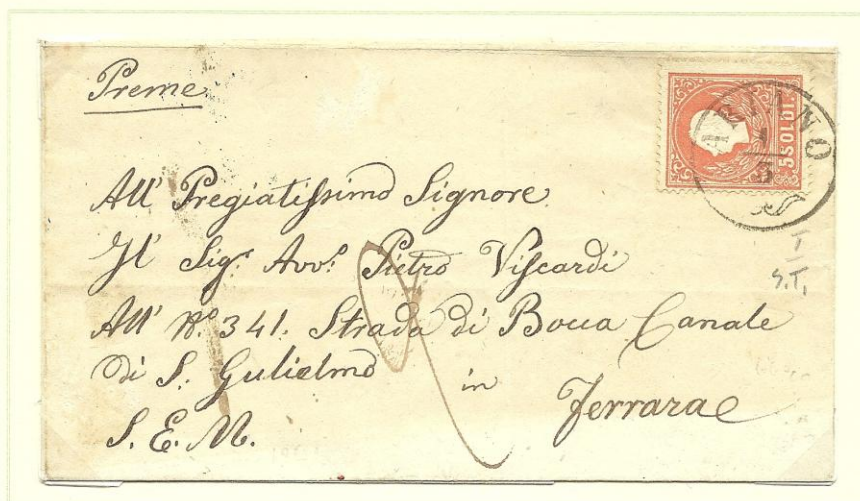 Preme
5 SOLDI.
ARIANO
1
3
All' Pregiatissimo Signore
Il Sig.r Avv.o Pietro Viscardi
All' N.o 341. Strada di Bocca Canale
Di S. Gulielmo in Ferrara
S. E. M.
I
S.T.